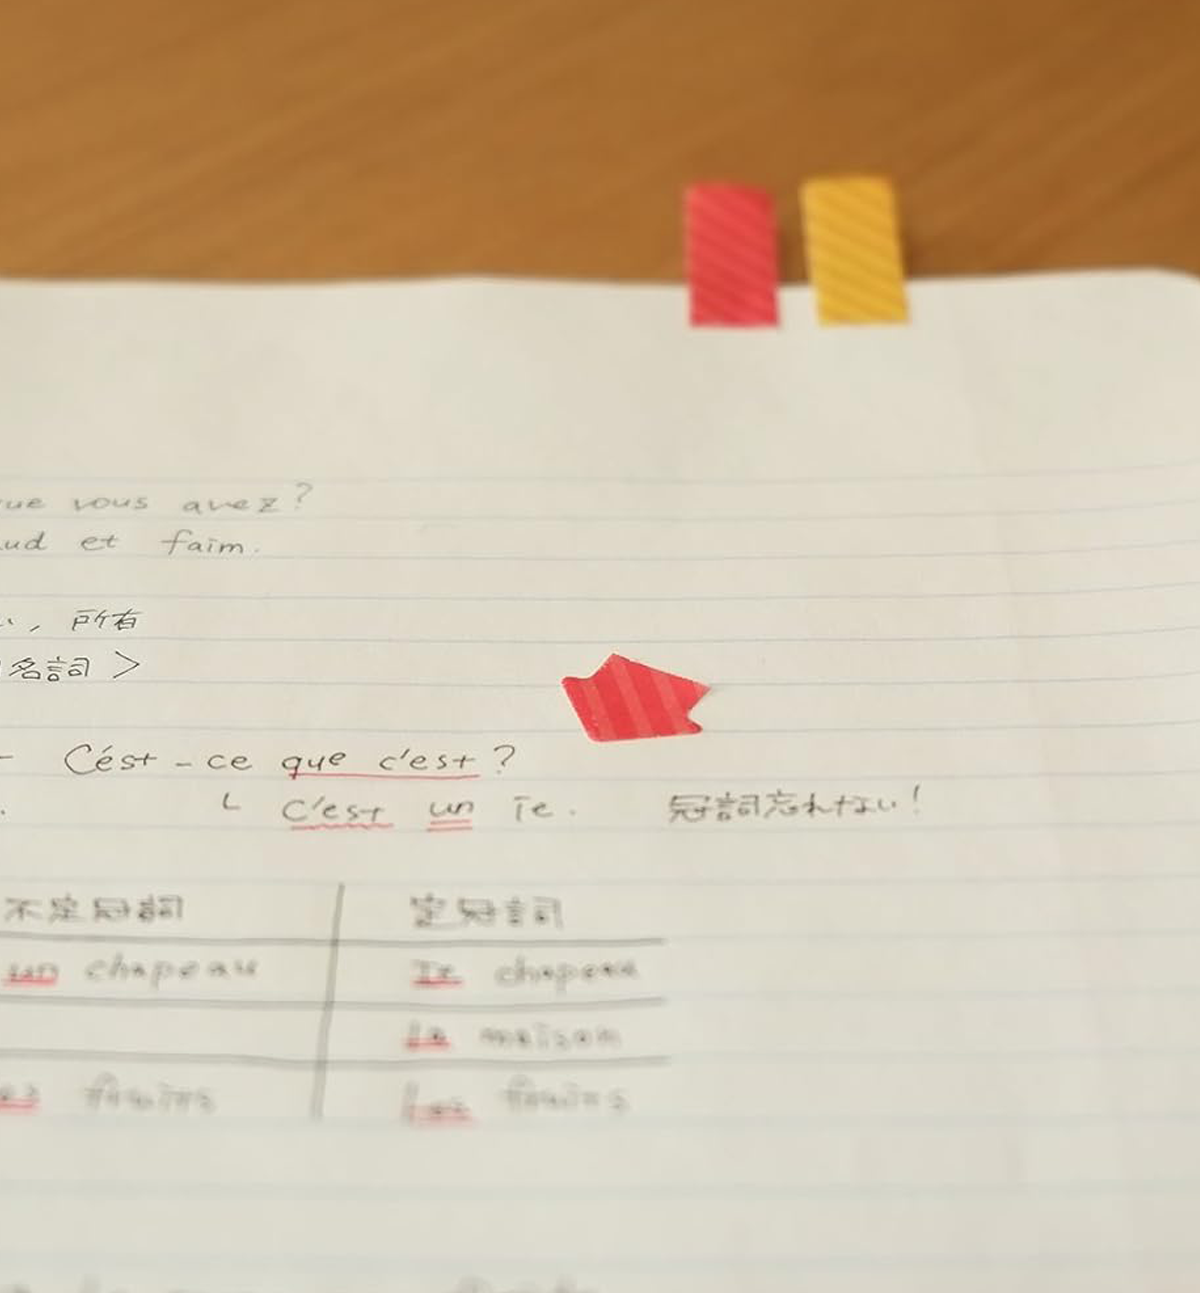 que vous avez?
ud et faim.
い, 所有
名詞 >
- Cést-ce que c'est?
. └ C'est un ie. 冠詞忘れない!
不定冠詞 定冠詞
un chapeau le chapeau
la maison
les